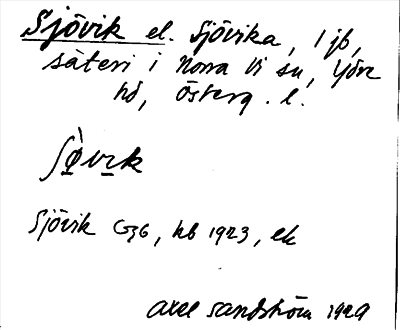 Sjövik el. Sjövika, 1 jb,
säteri i Norra Vi sn, Ydre
hd, Österg. l.
Sjövik G36, hb 1923, ek
Axel Sandström 1929